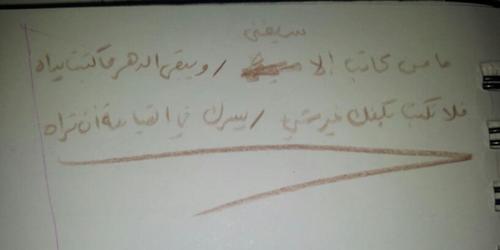 سيفنى
ما من كاتب إلا / ويبقى الدهر ما كتبت يداه
فلا تكتب بكفك غير شيء / يسرك في القيامة أن تراه